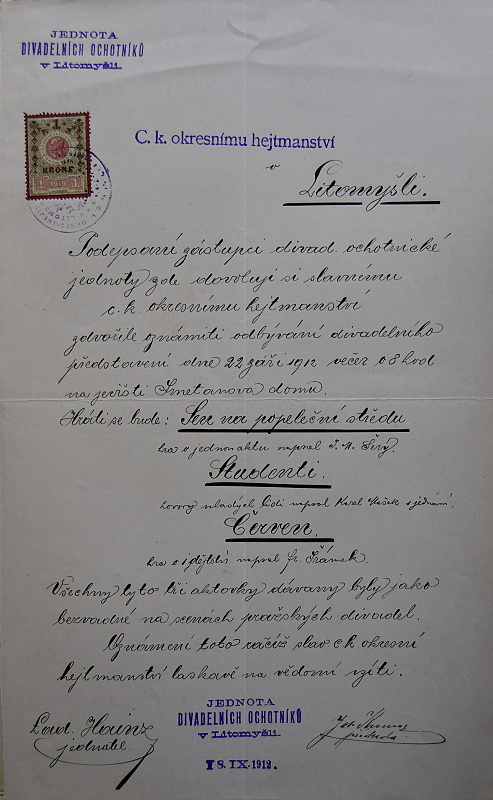 JEDNOTA
DIVADELNÍCH OCHOTNÍKŮ
v Litomyšli.
1
KRONE
1 1910 1
C. k. okresnímu hejtmanství
v
Litomyšli.
Podepsaní zástupci divad. ochotnické
jednoty zde dovolují si slavnému
c. k. okresnímu hejtmanství
zdvořile oznámiti odbývání divadelního
představení dne 22 září 1912 večer o 8 hod
na jevišti Smetanova domu.
Hráti se bude: Sen na popeleční středu
hra o jednom aktu napsal
Studenti.
hovory mladých lidí napsal Karel Mašek
Červen.
hra o 1 dějství napsal Fr. Šrámek.
Všechny tyto tři aktovky dávany byly jako
bezvadné na scenách pražských divadel.
Oznámení toto račiž slav c k. okresní
hejtmanství laskavě na vědomí vzíti.
JEDNOTA
DIVADELNÍCH OCHOTNÍKŮ
v Litomyšli.
18. IX. 1912.
jednatel.
předseda